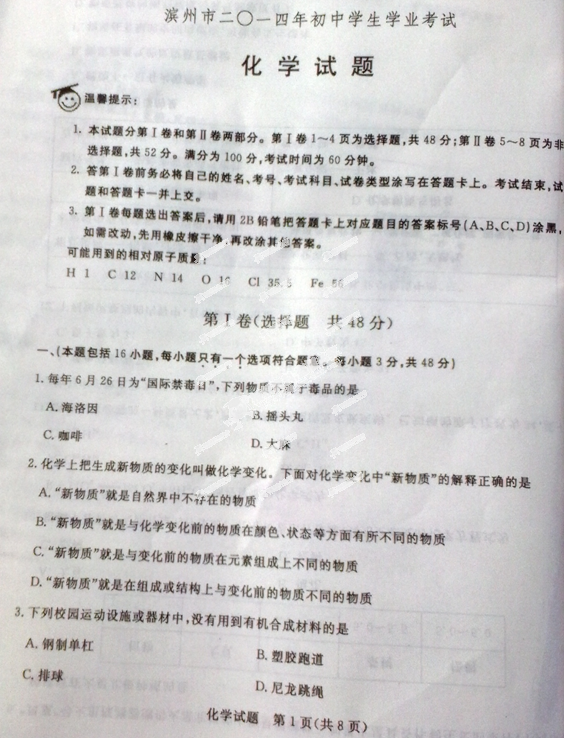 滨州市二〇一四年初中学生学业考试
化学试题
温馨提示：
1. 本试题分第Ⅰ卷和第Ⅱ卷两部分。第Ⅰ卷1~4页为选择题，共48分；第Ⅱ卷5~8页为非
选择题，共52分。满分为100分，考试时间为60分钟。
2. 答第Ⅰ卷前务必将自己的姓名、考号、考试科目、试卷类型涂写在答题卡上。考试结束，试
题和答题卡一并上交。
3. 第Ⅰ卷每题选出答案后，请用2B铅笔把答题卡上对应题目的答案标号(A、B、C、D)涂黑，
如需改动，先用橡皮擦干净，再改涂其他答案。
可能用到的相对原子质量：
H 1 C 12 N 14 O 16 Cl 35.5 Fe 56
第Ⅰ卷(选择题 共48分)
一、(本题包括16小题，每小题只有一个选项符合题意。每小题3分，共48分)
1. 每年6月26日为“国际禁毒日”，下列物质不属于毒品的是
A. 海洛因 B. 摇头丸
C. 咖啡 D. 大麻
2. 化学上把生成新物质的变化叫做化学变化。下面对化学变化中“新物质”的解释正确的是
A. “新物质”就是自然界中不存在的物质
B. “新物质”就是与化学变化前的物质在颜色、状态等方面有所不同的物质
C. “新物质”就是与变化前的物质在元素组成上不同的物质
D. “新物质”就是在组成或结构上与变化前的物质不同的物质
3. 下列校园运动设施或器材中，没有用到有机合成材料的是
A. 钢制单杠 B. 塑胶跑道
C. 排球 D. 尼龙跳绳
化学试题 第1页(共8页)